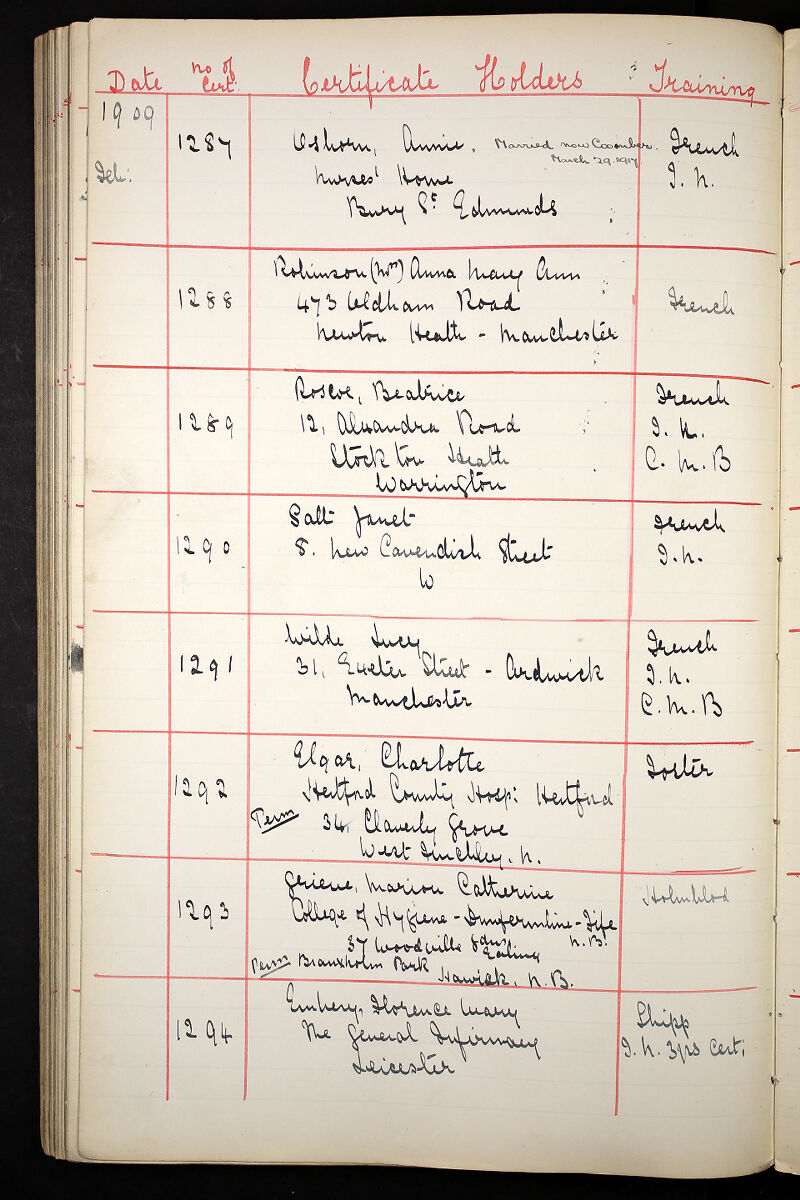 Date no of Cert: Certificate Holders Training
1909
1287 Osborn, Annie. Married now Coomber. French
March 29. 1917.
Feb: Nurses' Home T. N.
Bury St Edmunds
Robinson (Mrs) Anna Mary Ann
1288 473 Oldham Road French
Newton Heath - Manchester
Roscoe, Beatrice French
1289 12, Alexandra Road T. N.
Stockton Heath C. M. B
Warrington
Salt Janet French
1290 8. New Cavendish Street T. N.
W
Wilde Lucy French
1291 31, Exeter Street - Ardwick T. N.
Manchester C. M. B
Elgar, Charlotte Foster
1292 Hertford County Hosp: Hertford
Perm 34, Claverly Grove
West Finchley. N.
Grieve, Marion Catherine
1293 College of Hygiene - Dunfermline - Fife
N. B.
37 Woodville Gdns Ealing
Perm Branxholm Park
Hawick, N. B.
Embery, Florence Mary Shipp
1294 The General Infirmary T. N. 3yrs Cert:
Leicester